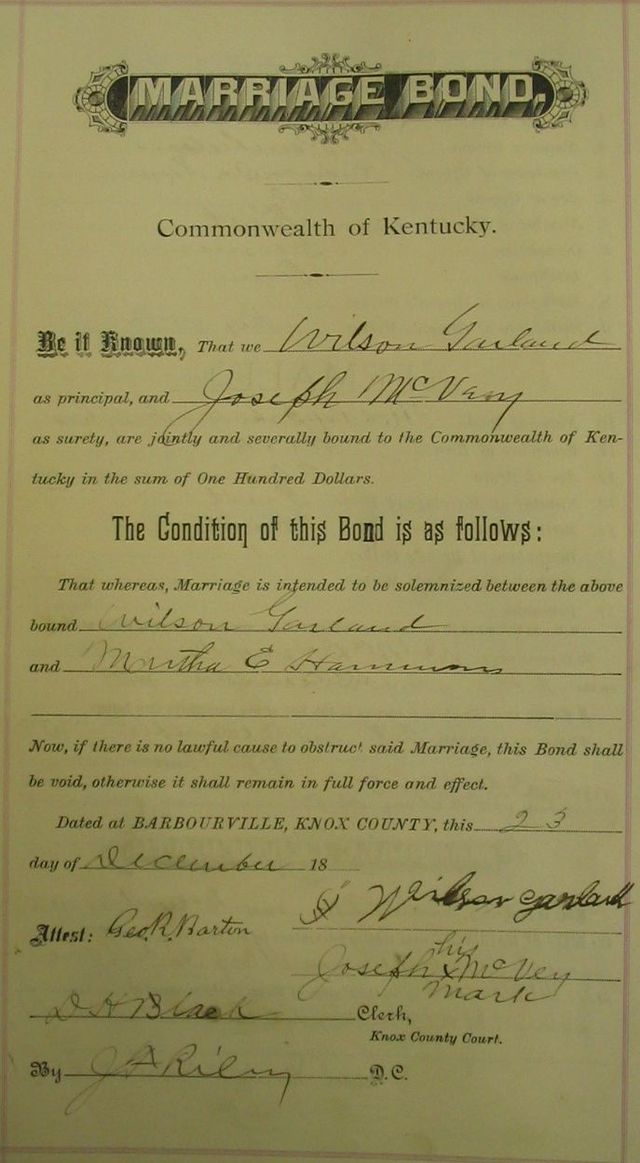 MARRIAGE BOND.
Commonwealth of Kentucky.
Be it Known, That we Wilson Garland
as principal, and Joseph McVey
as surety, are jointly and severally bound to the Commonwealth of Ken-
tucky in the sum of One Hundred Dollars.
The Condition of this Bond is as follows:
That whereas, Marriage is intended to be solemnized between the above
bound Wilson Garland
and Martha E Hammons
Now, if there is no lawful cause to obstruct said Marriage, this Bond shall
be void, otherwise it shall remain in full force and effect.
Dated at BARBOURVILLE, KNOX COUNTY, this 23
day of December 18
Wilson Garland
Attest: Geo. R. Barton
his
Joseph x McVey
mark
D H Black Clerk,
Knox County Court.
By J A Riley D.C.